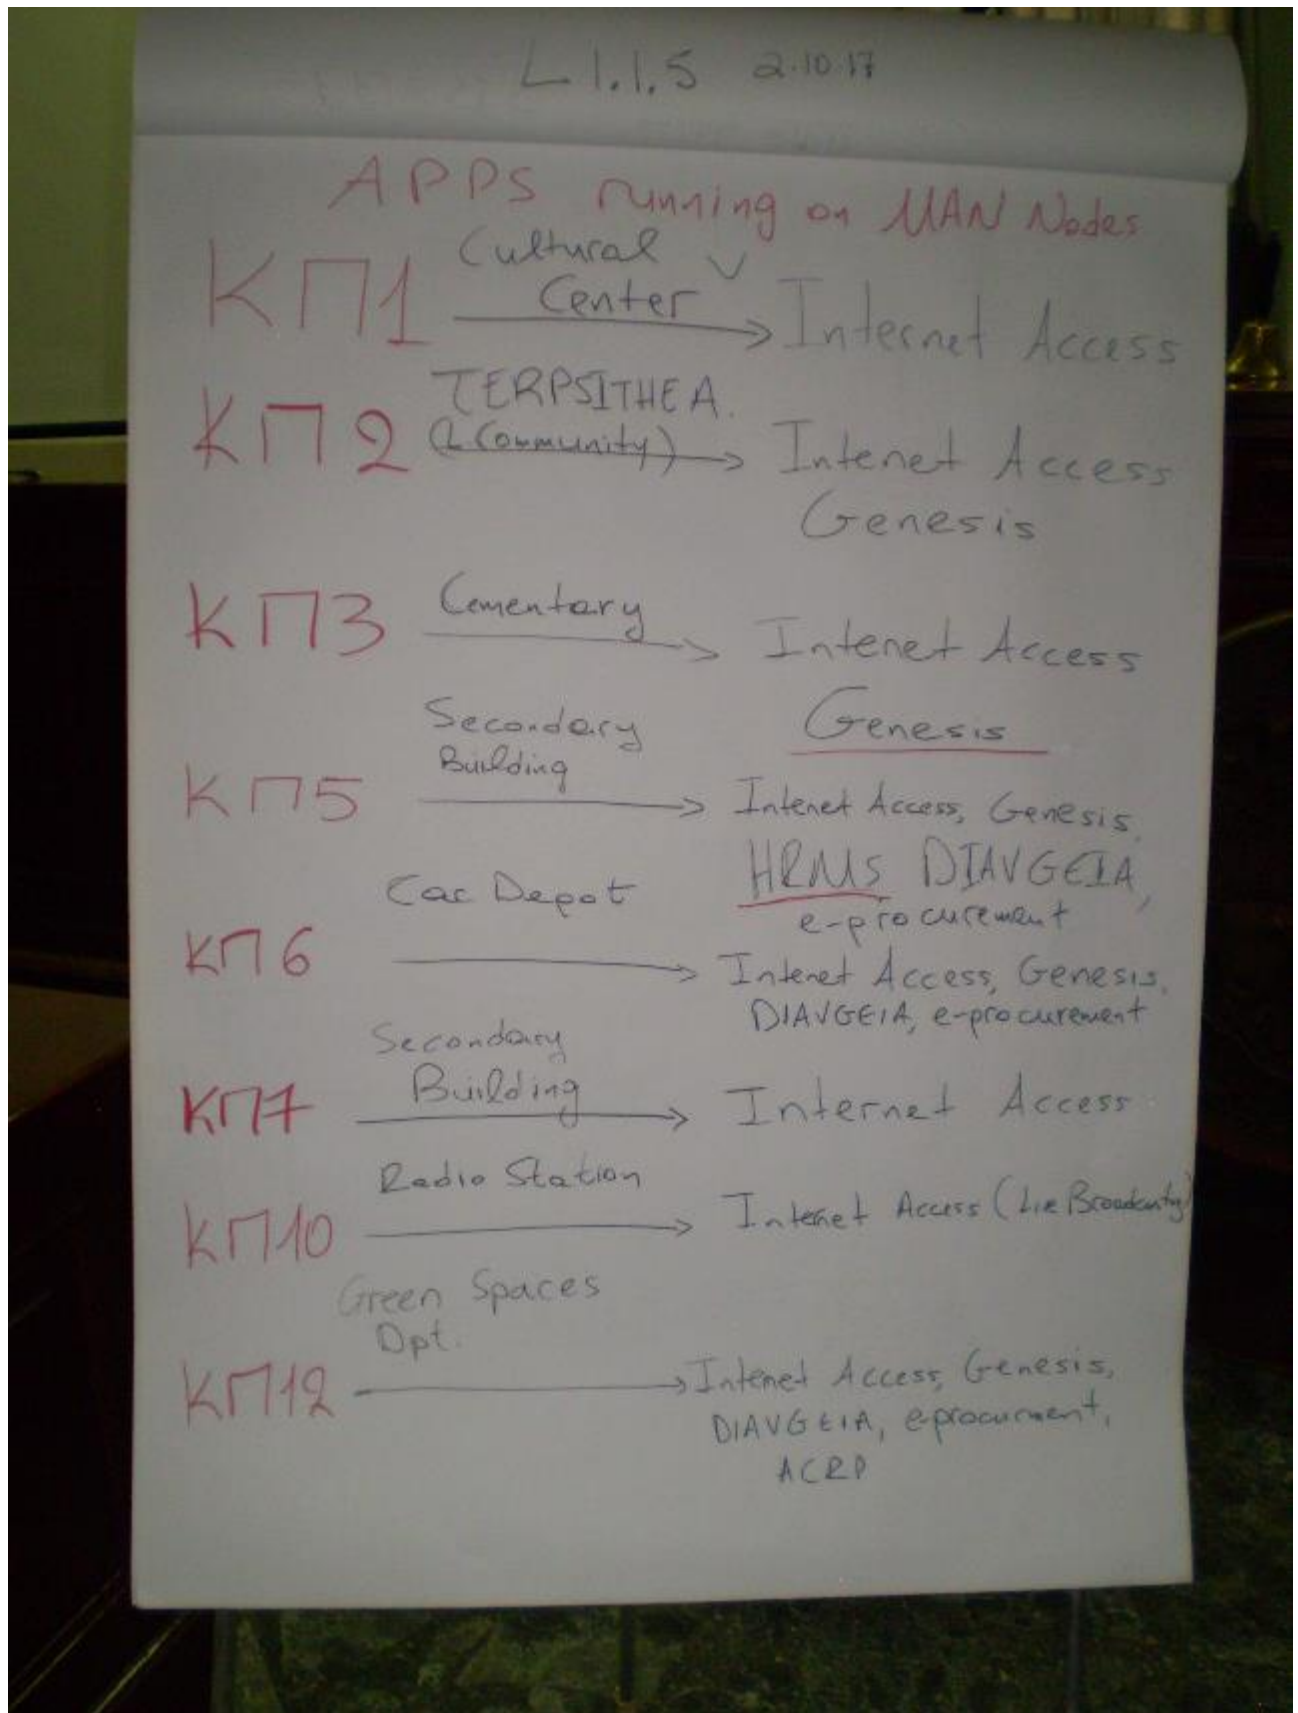 L 1.1.5 2.10.17
APPS running on MAN Nodes
ΚΠ1 Cultural Center Internet Access
ΚΠ2 TERPSITHEA.
(L Community) Intenet Access
Genesis
ΚΠ3 Cementary Intenet Access
Genesis
Secondary
Building
ΚΠ5 Intenet Access, Genesis,
HRMS DIAVGEIA,
e-procurement
Car Depot
ΚΠ6 Intenet Access, Genesis,
DIAVGEIA, e-procurement
Secondary
Building
ΚΠ7 Internet Access
Radio Station
ΚΠ10 Internet Access (Live
Green Spaces
Dpt.
ΚΠ12 Intenet Access, Genesis,
DIAVGEIA, e-procurment,
ACRP